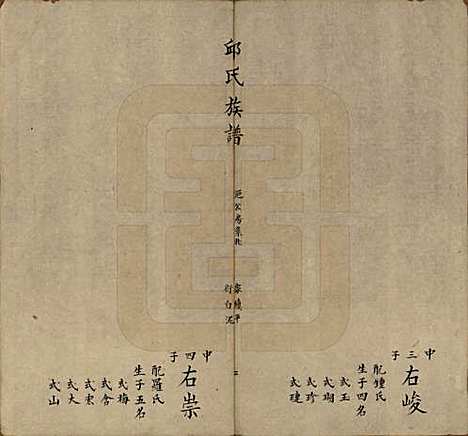 邱氏族譜
中三子
右峻
配鍾氏
生子四名
式玉
式瑚
式珍
式璉
三
中四子
右崇
配羅氏
生子五名
式梅
式含
式宏
式大
式山